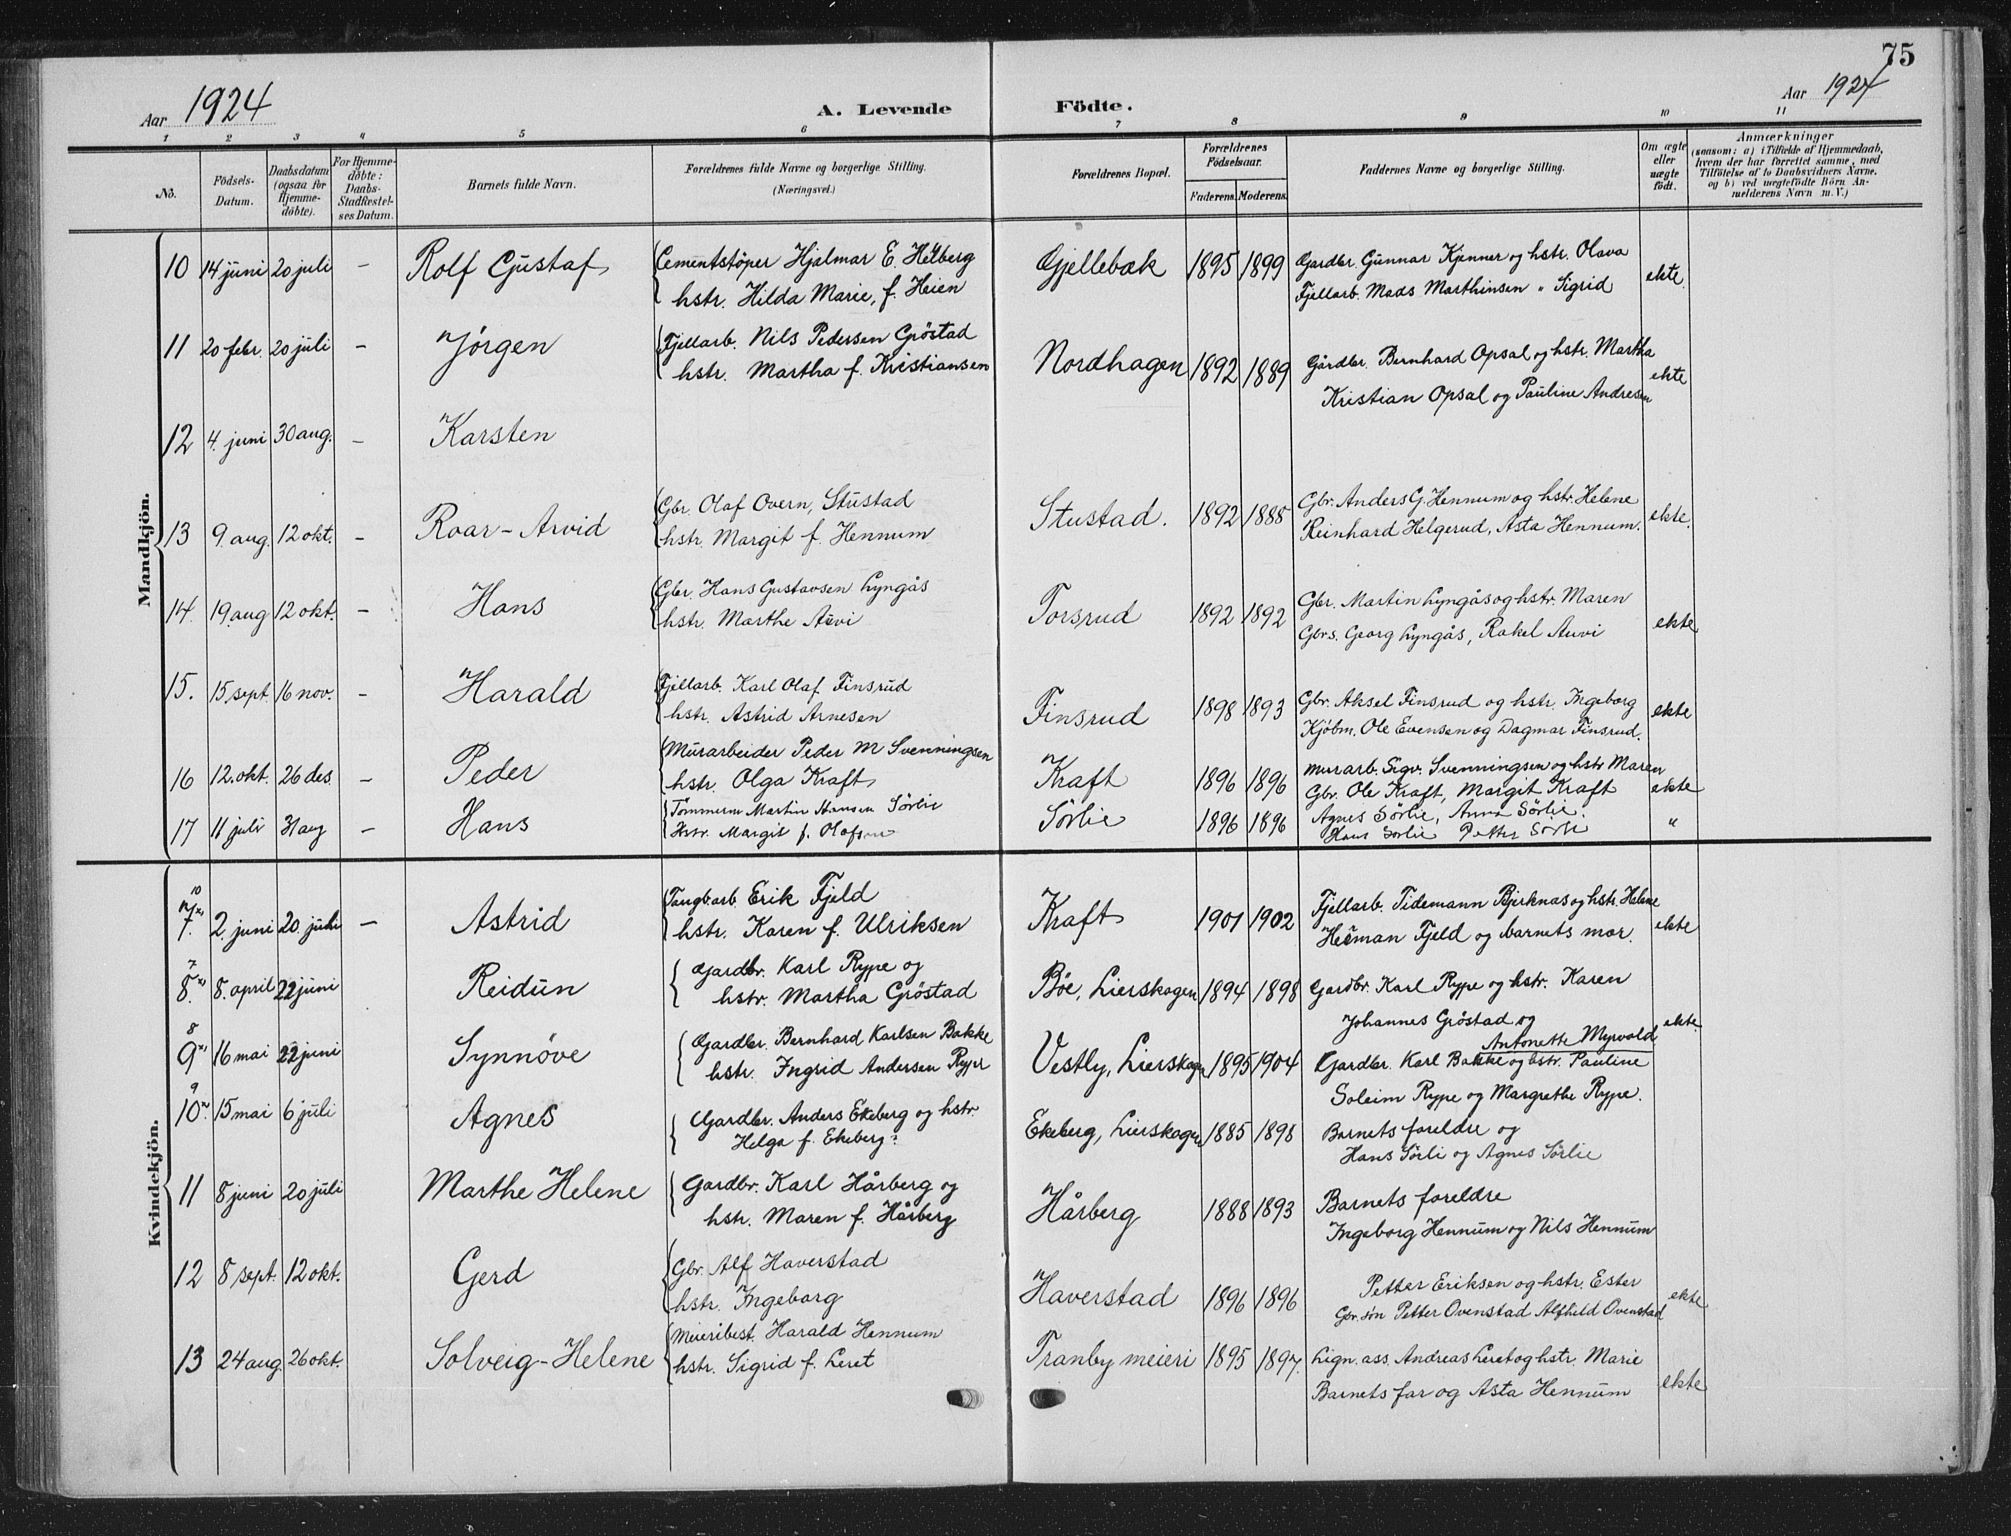 75
Aar 1924
A. Levende Födte.
Aar 1924
1 2 3 4 5 6 7 8 9 10 11
No.
Födsels-Datum.
Daabsdatum (ogsaa for Hjemme-döbte).
For Hjemme-döbte: Daabs-Stadfæstel-ses Datum.
Barnets fulde Navn.
Forældrenes fulde Navne og borgerlige Stilling. (Næringsvei.)
Forældrenes Bopæl.
Forældrenes Födselsaar.
Faderens. Moderens.
Faddernes Navne og borgerlige Stilling.
Om ægte eller uægte födt.
Anmærkninger (saasom: a) i Tilfælde af Hjemmedaab, hvem der har forrettet samme, med Tilföielse af to Daabsvidners Navne, og b) ved uægtefödte Börn Anmelderens Navn m. V.)
Mandkjön.
10 14 juni 20 juli – Rolf Gustaf Cementstøper Hjalmar E. Helberg
hstr. Hilda Marie, f. Heien
Gjellebæk 1895 1899 Gardbr. Gunnar Kjenner og hstr. Olava
Fjellarb. Mads Marthinsen „ Sigrid ekte
11 20 febr. 20 juli – Jørgen Fjellarb. Nils Pedersen Gröstad
hstr. Martha f. Kristiansen
Nordhagen 1892 1889 Gårdbr. Bernhard Opsal og hstr. Martha
Kristian Opsal og Pauline Andresen ekte
12 4. juni 30 aug. – Karsten
13 9 aug. 12 okt. – Roar-Arvid Gbr. Olaf Overn, Stustad
hstr. Margit f. Hennum
Stustad. 1892 1888 Gbr. Anders G. Hennum og hstr. Helene
Reinhard Helgerud, Asta Hennum. ekte.
14 19 aug 12 okt. – Hans Gbr. Hans Gustavsen Lyngås
hstr. Marthe Auvi
Torsrud 1892 1892 Gbr. Martin Lyngås og hstr. Maren
Gbrs. Georg Lyngås, Rakel Auvi ekte
15. 15 sept 16 nov. – Harald Fjellarb. Karl Olaf Finsrud
hstr. Astrid Arnesen
Finsrud 1898 1893 Gbr. Aksel Finsrud og hstr. Ingeborg
Kjøbm. Ole Evensen og Dagmar Finsrud. ekte
16 12. okt. 26 des. – Peder Murarbeider Peder M Svenningsen
hstr. Olga Kraft
Kraft 1896 1896 Murarb. Sigv. Svenningsen og hstr Maren
Gbr. Ole Kraft, Margit Kraft ekte
17 11 juli 31 aug – Hans Tömmerm Martin Hansen Sörlie
Hstr. Margit f. Olafsen
Sörlie 1896 1896 Agnes Sörlie, Anna Sörlie.
Hans Sörlie Petter Sörli „
Kvindekjön.
10
7. 2. juni 20. juli – Astrid Taugb.arb. Erik Fjeld
hstr. Karen f. Ulriksen
Kraft 1901 1902 Fjellarb. Tidemann Bjerknas og hstr. Helene
Herman Fjeld og barnets mor. ekte
7
8. 8. april 22 juni Reidun Gardbr. Karl Rype og
hstr. Martha Gröstad
Bøe, Lierskogen 1894 1898 Gardbr. Karl Rype og hstr. Karen
Johannes Gröstad og
Antonette Myrvold ekte
8
9 16 mai 22 juni Synnøve Gardbr. Bernhard Karlsen Bakke
hstr. Ingrid Andersen Rype
Vestly, Lierskogen 1895 1904 Gardbr. Karl Bakke og hstr. Pauline
Soleim Rype og Margrethe Rype.
9
10 15 mai 6 juli Agnes Gardbr. Anders Ekeberg og hstr
Helga f. Ekeberg?
Ekeberg, Lierskogen 1885 1898 Barnets foreldre og
Hans Sörli og Agnes Sörlie
11 8 juni 20 juli Marthe Helene Gardbr. Karl Hårberg og
hstr. Maren f. Hårberg
Hårberg 1888 1893 Barnets foreldre
Ingeborg Hennum og Nils Hennum
12 8 sept. 12 okt. Gerd Gbr. Alf Haverstad
hstr. Ingeborg
Haverstad 1896 1896 Petter Eriksen og hstr. Ester
Gbr. søn Petter Ovenstad Alfhild Ovenstad ekte
13 24 aug. 26 okt. Solveig-Helene Meieribest. Harald Hennum
hstr. Sigrid f. Leret
Tranby meieri 1895 1897. Lign. ass. Andreas Leret og hstr. Marie
Barnets far og Asta Hennum ekte